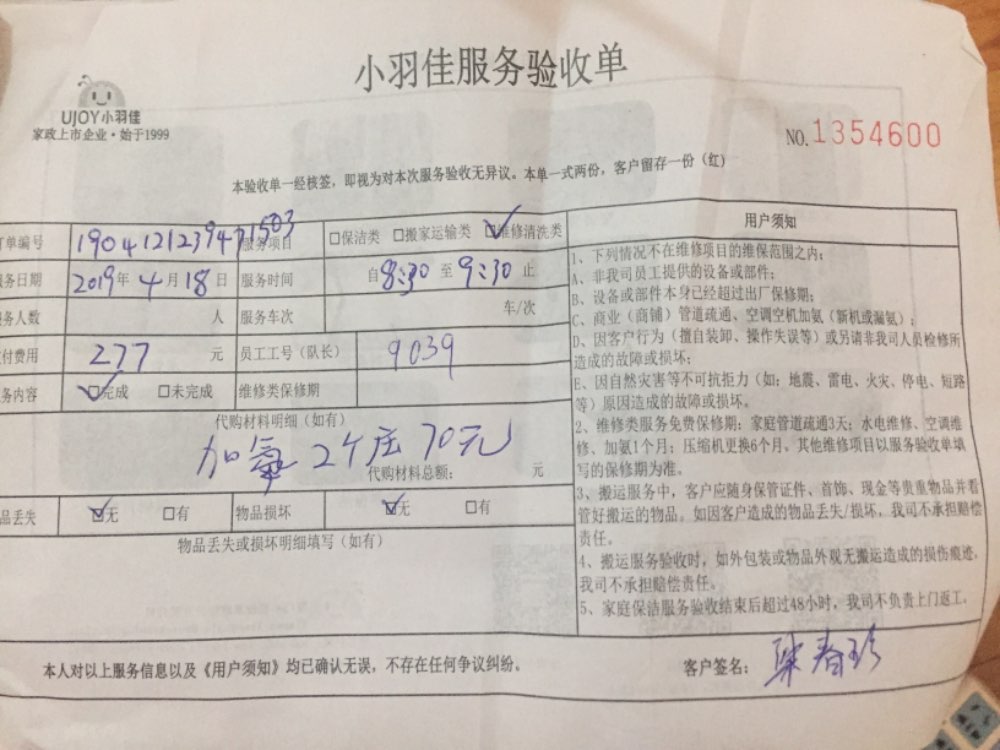 小羽佳服务验收单
UJOY小羽佳
家政上市企业·始于1999
NO.1354600
本验收单一经核签，即视为对本次服务验收无异议。本单一式两份，客户留存一份（红）
单编号 服务项目 □保洁类 □搬家运输类 □维修清洗类
务日期 2019年4月18日 服务时间 自8:30至9:30止
务人数 人 服务车次 车/次
付费用 277 元 员工工号（队长） 9039
务内容 □完成 □未完成 维修类保修期
代购材料明细（如有）
加氧 2个压 70元
代购材料总额： 元
品丢失 □无 □有 物品损坏 □无 □有
物品丢失或损坏明细填写（如有）
用户须知
1、下列情况不在维修项目的维保范围之内：
A、非我司员工提供的设备或部件；
B、设备或部件本身已经超过出厂保修期；
C、商业（商铺）管道疏通、空调空机加氨（新机或漏氨）；
D、因客户行为（擅自装卸、操作失误等）或另请非我司人员检修所
造成的故障或损坏；
E、因自然灾害等不可抗拒力（如：地震、雷电、火灾、停电、短路
等）原因造成的故障或损坏。
2、维修类服务免费保修期：家庭管道疏通3天；水电维修、空调维
修、加氨1个月；压缩机更换6个月。其他维修项目以服务验收单填
写的保修期为准。
3、搬运服务中，客户应随身保管证件、首饰、现金等贵重物品并看
管好搬运的物品。如因客户造成的物品丢失/损坏，我司不承担赔偿
责任。
4、搬运服务验收时，如外包装或物品外观无搬运造成的损伤痕迹，
我司不承担赔偿责任。
5、家庭保洁服务验收结束后超过48小时，我司不负责上门返工。
本人对以上服务信息以及《用户须知》均已确认无误，不存在任何争议纠纷。
客户签名：